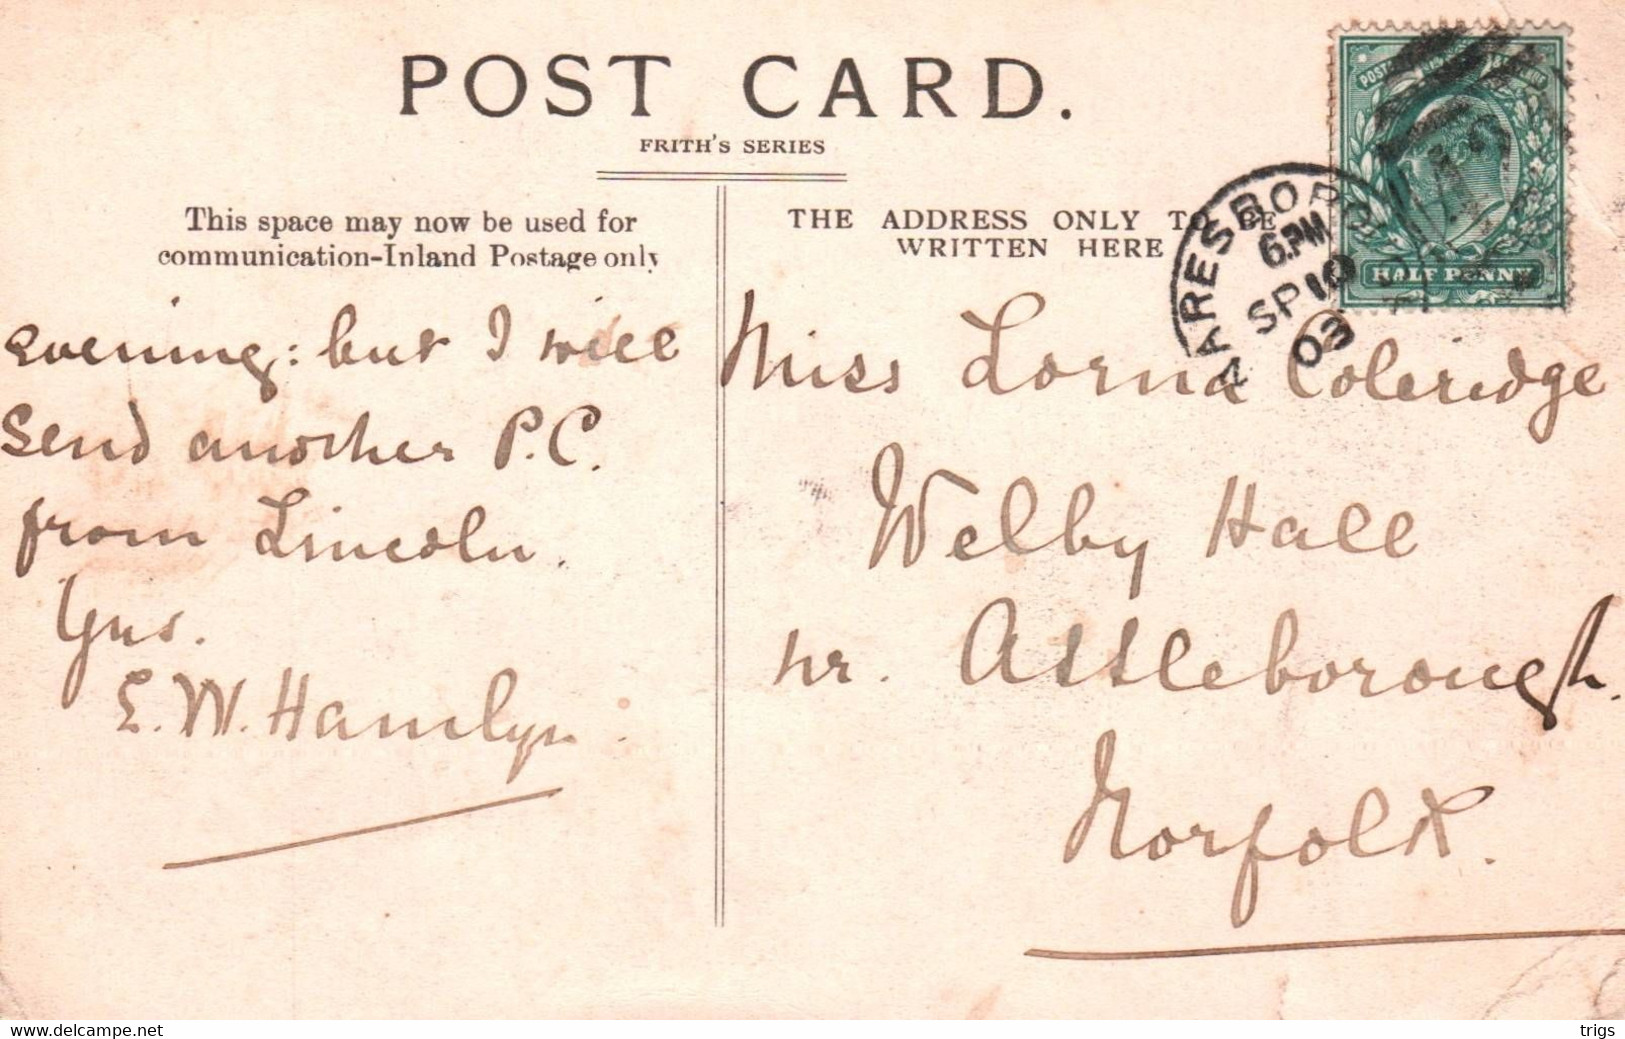 POST CARD.
FRITH'S SERIES
This space may now be used for
communication-Inland Postage only
THE ADDRESS ONLY TO BE
WRITTEN HERE
POSTAGE REVENUE
HALF PENNY
NARESBORO
6.PM
SP 10
03
evening: but I will
send another P.C.
from Lincoln.
Yrs.
E. W. Hamlyn.
Miss Lorna Coleridge
Welby Hall
nr. Attleborough.
Norfolk.
delcampe.net
trigs